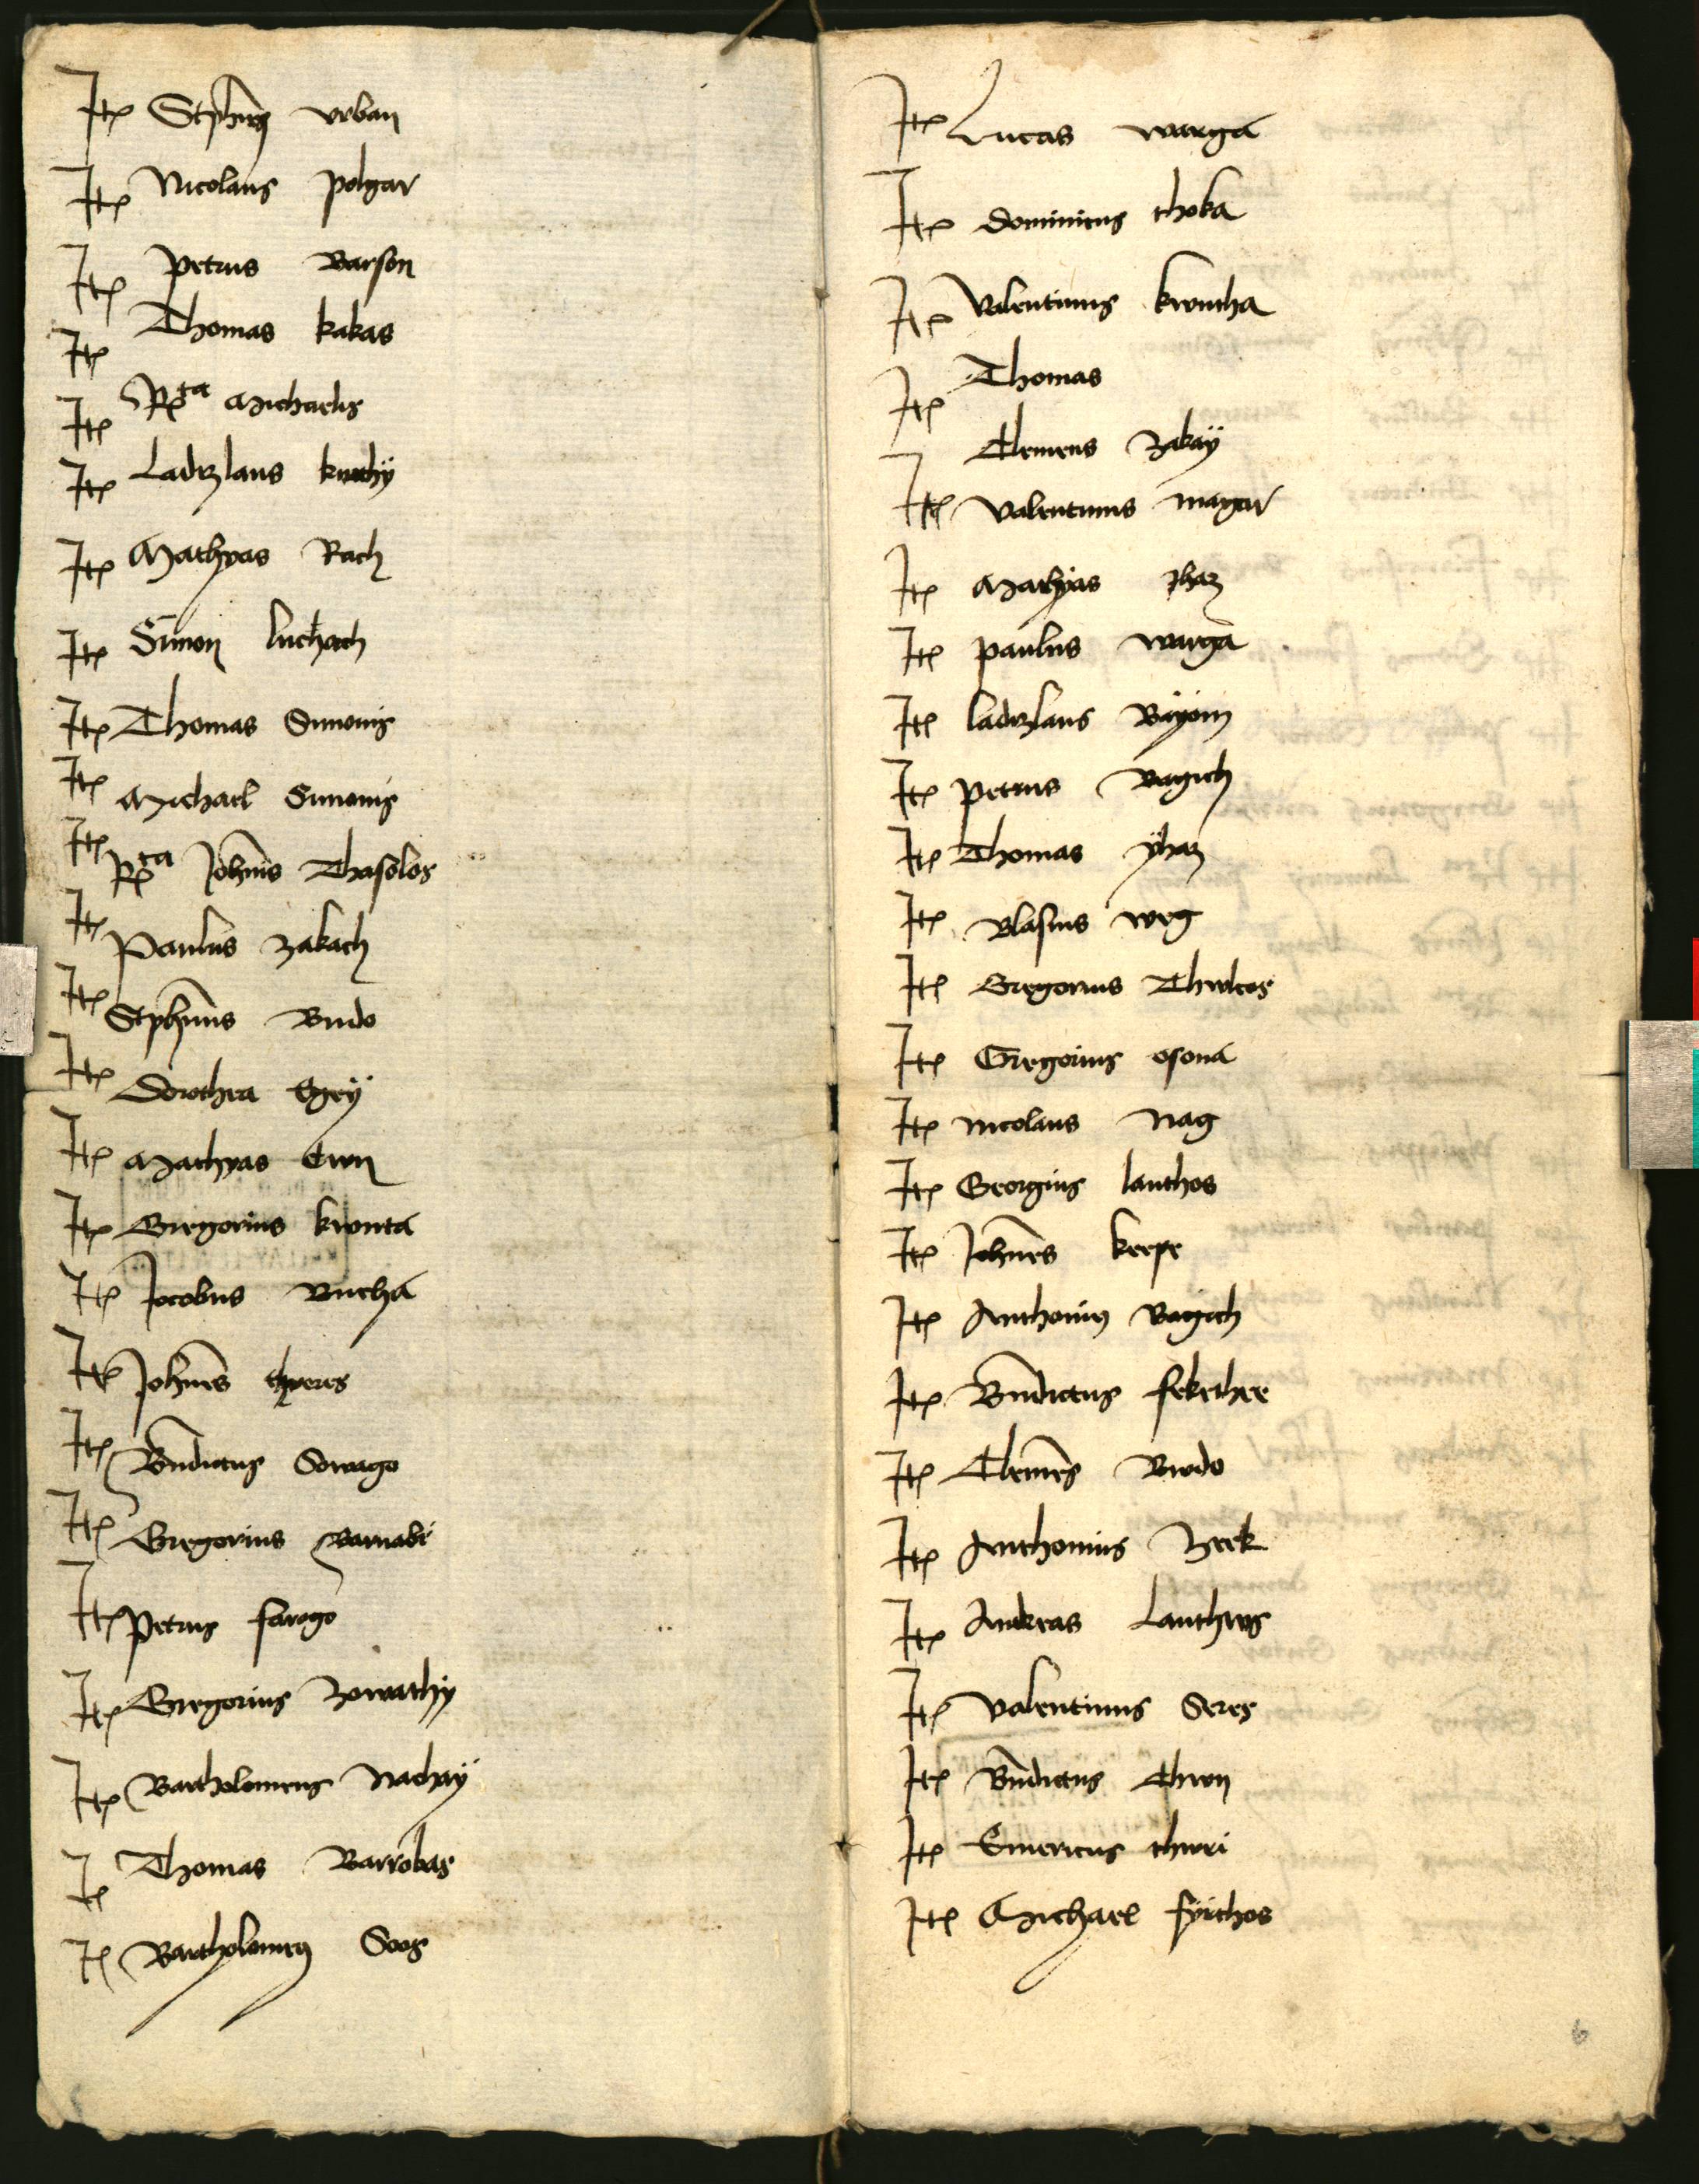 Itt Stphns vrban
Itt Nicolaus polgar
Itt petrus Barson
Itt Thomas kakas
Itt Rta Michaelis
Itt Ladizlaus kuthÿ
Itt Mathyas Rach
Itt Simon luchach
Itt Thomas Simonis
Itt Michael Simonis
Itt Rta Johnis Thasolos
Itt Paulus zakach
Itt Stphnus Budo
Itt Dorothea Egeÿ
Itt Mathyas Cwn
Itt Gregorius kwnta
Itt Jacobus Bucha
Itt Johnes thyeres
Itt Bndictus Sowago
Itt Gregorius Barnabe
Itt petrus farago
Itt Gregorius Zowathÿ
Itt Bartholomeus Nadaÿ
It Thomas Barrobas
It Bartholomeus Soos
Itt Lucas warga
Itt dominicus thoka
Itt Valentinus kwntha
Itt Thomas
Clemens Zakaÿ
Itt Valentinus magar
Itt Mathÿas yhaz
Itt paulus warga
Itt ladizlaus Baÿom
Itt petrus Bagich
Itt Thomas ÿhaz
Itt Blasius weg
Itt Gregorius Thwlcos
Itt Gregorius osona
Itt nicolaus Nag
Itt Georgius lanthos
Itt Johnes keepe
Itt Anthonius Bagich
Itt Bndictus fekethee
Itt Clemes Bwdo
Itt Anthonius Zeek
Itt Andreas Lanthws
Itt Valentinus Seres
Itt Bndictus Chwn
Itt Emericus thwri
Itt Michael fÿrthos
6